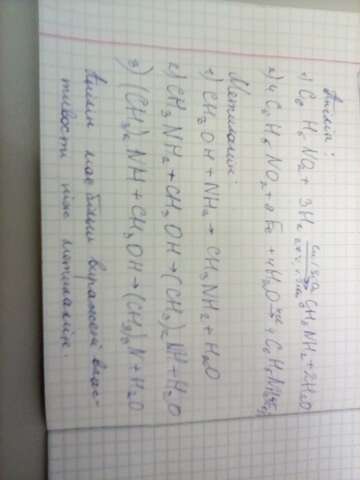 Анілін:
1) C6H5NO2 + 3H2 → C6H5NH2 + 2H2O
2) 4C6H5NO2 + 9Fe + 4H2O → 4C6H5NH2
Метиламін:
1) CH3OH + NH3 → CH3NH2 + H2O
2) CH3NH2 + CH3OH → (CH3)2NH + H2O
3) (CH3)2NH + CH3OH → (CH3)3N + H2O
Анілін має більш виражені влас-
тивості ніж метиламін.